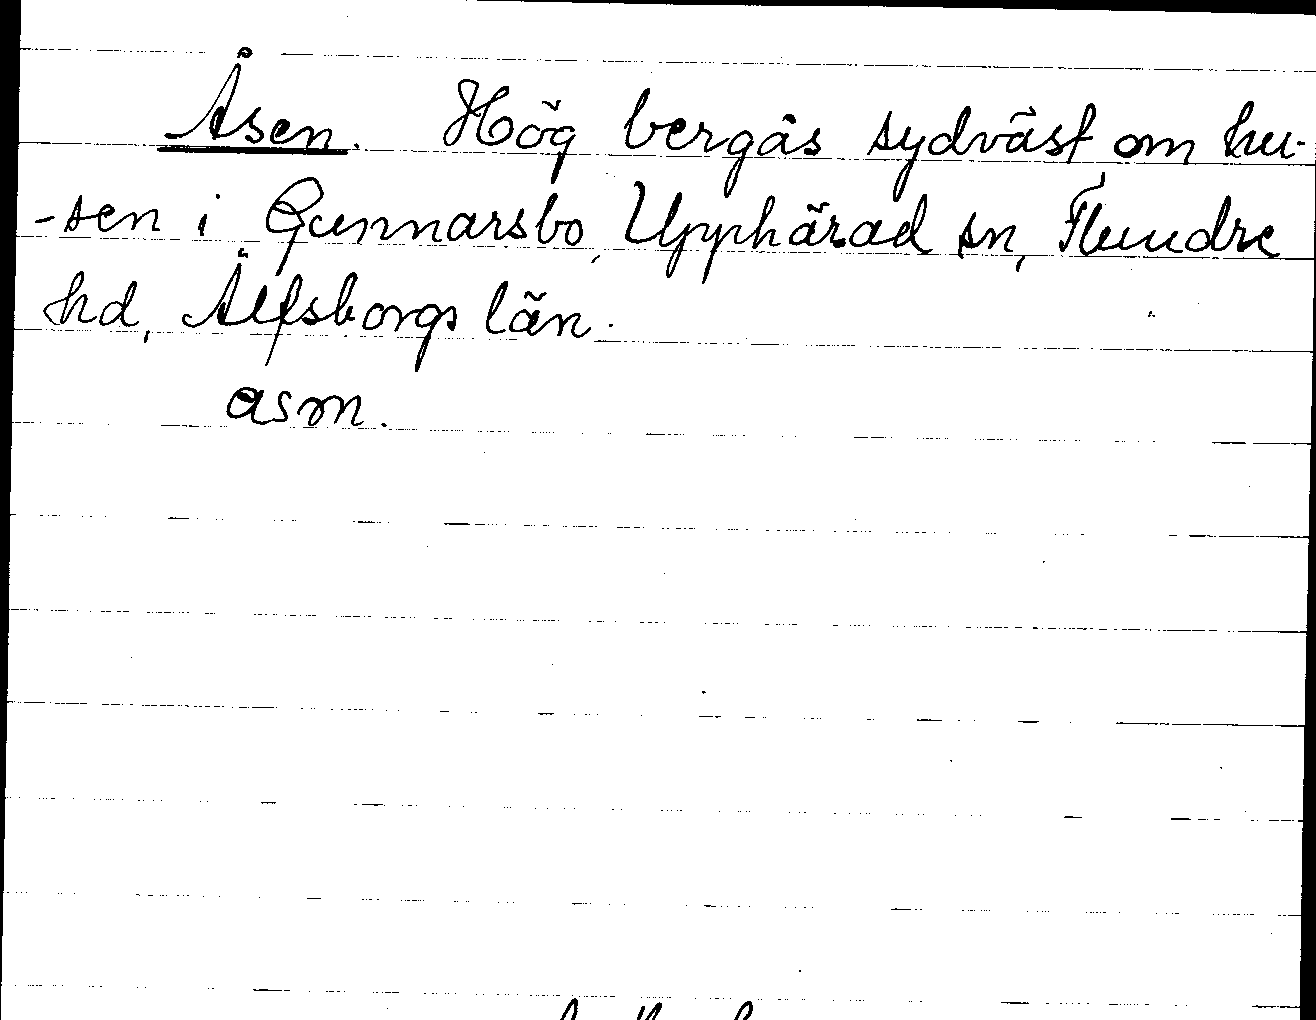 Åsen. Hög bergås sydväst om hu-
-sen i Gunnarsbo, Upphärad sn, Flundre
hd, Älfsborgs län.
asm.